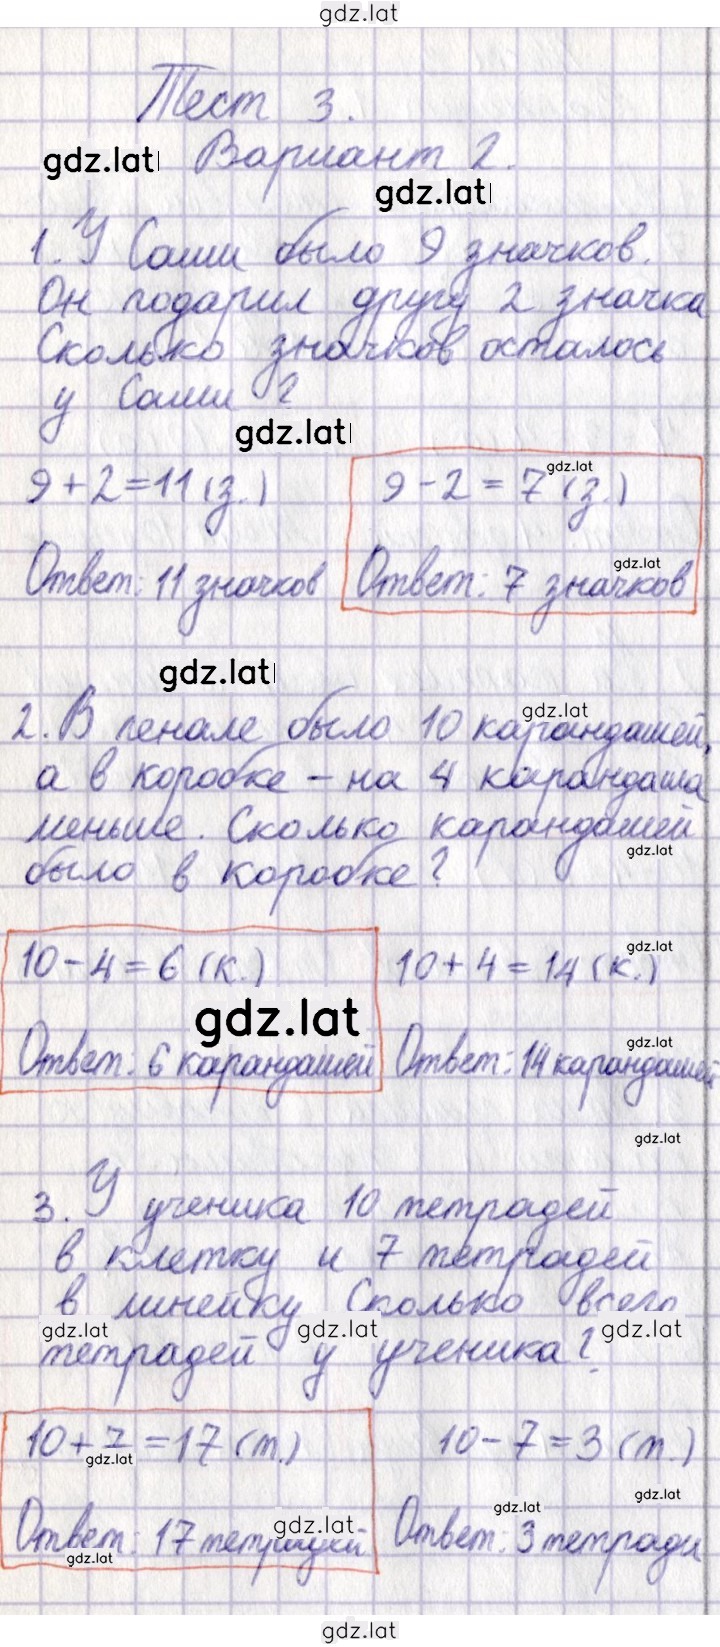 gdz.lat
Тест 3.
gdz.lat Вариант 2.
gdz.lat
1. У Саши было 9 значков.
Он подарил другу 2 значка
Сколько значков осталось
у Саши?
gdz.lat
gdz.lat
9+2=11(з.) 9-2=7(з.)
gdz.lat
Ответ: 11 значков Ответ: 7 значков
gdz.lat
gdz.lat
2. В пенале было 10 карандашей,
а в коробке - на 4 карандаша
меньше. Сколько карандашей
gdz.lat
было в коробке?
gdz.lat
10-4=6(к.) 10+4=14(к.)
gdz.lat
gdz.lat
Ответ: 6 карандашей Ответ: 14 карандашей
gdz.lat
3. У ученика 10 тетрадей
в клетку и 7 тетрадей
в линейку Сколько всего
gdz.lat gdz.lat gdz.lat
тетрадей у ученика?
10+7=17(т.) 10-7=3(т.)
gdz.lat
gdz.lat
gdz.lat
gdz.lat
Ответ: 17 тетрадей Ответ: 3 тетради
gdz.lat
gdz.lat